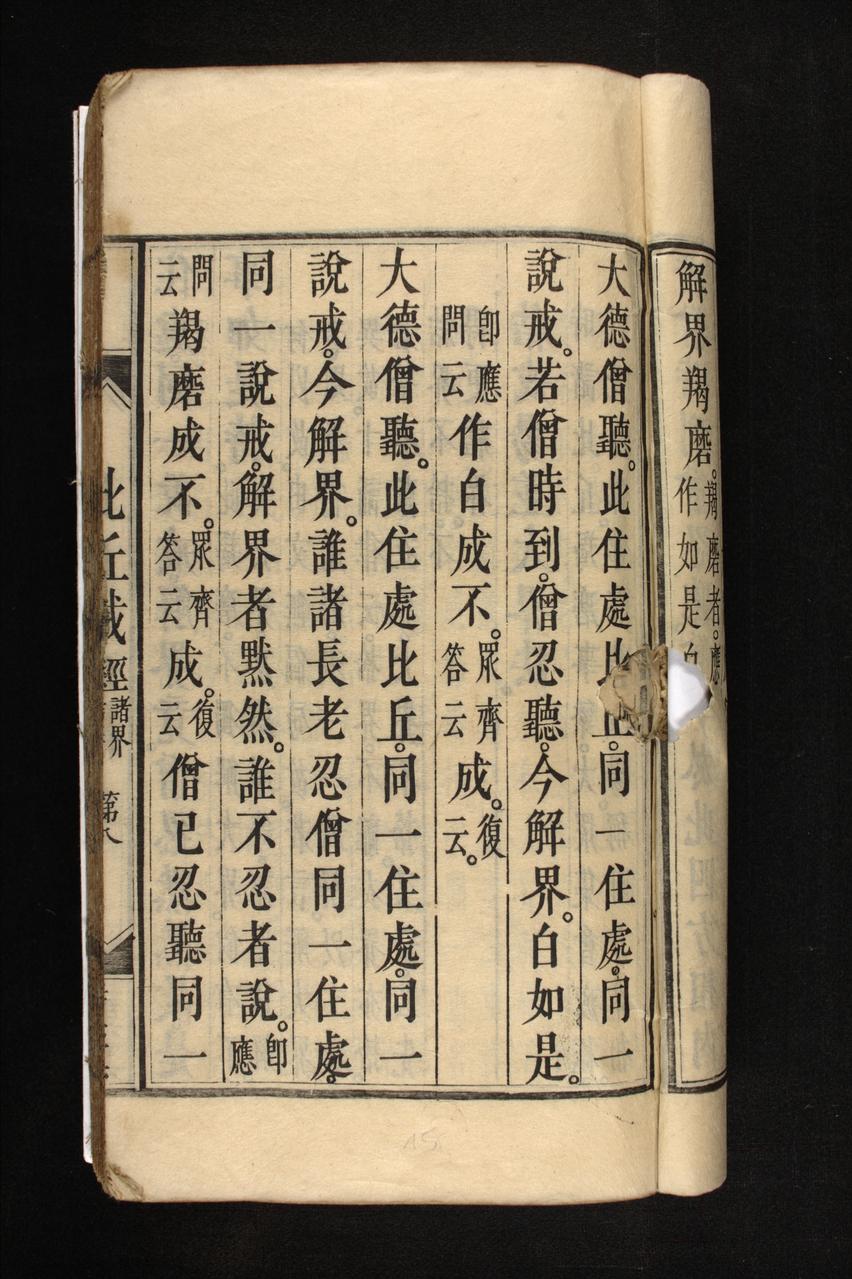 解界羯磨。羯磨者。應作如是白
大德僧聽。此住處比丘。同一住處。同一
說戒。若僧時到。僧忍聽。今解界。白如是。
即應問云作白成不。眾齊答云成。復云。
大德僧聽。此住處比丘。同一住處。同一
說戒。今解界。誰諸長老忍僧同一住處。
同一說戒。解界者黙然。誰不忍者說。即應
問云羯磨成不。眾齊答云成。復云僧已忍聽同一
比丘戒經 諸界 第八